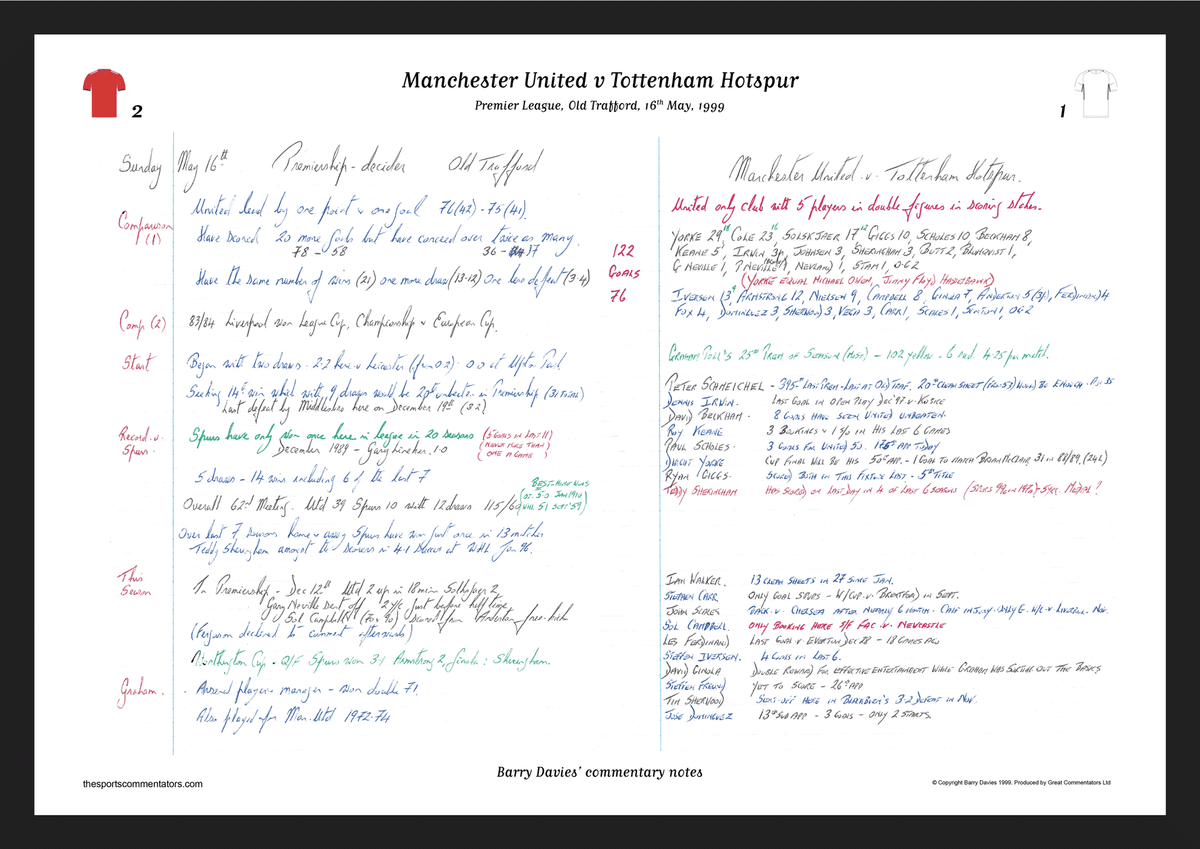 Manchester United v Tottenham Hotspur
Premier League, Old Trafford, 16th May, 1999
2
1
Sunday May 16th Premiership - decider Old Trafford
Comparison (1)
United lead by one point & one goal 76(42) - 75(41)
Have scored 20 more goals but have conceded over twice as many.
78 - 58 36 - 17
Have the same number of wins (21) one more draw (13-12) One less defeat (3-4)
122
GOALS
76
Comp (2)
83/84 Liverpool won League Cup, Championship & European Cup.
Start
Began with two draws - 2-2 here v Leicester (from 0-2) : 0-0 at Upton Park
Seeking 14th win which with 9 draws would be 20th unbeaten in Premiership (31 total)
Last defeat by Middlesbro here on December 19th (3-2)
Record v Spurs
Spurs have only won once here in league in 20 seasons
December 1989 - Gary Lineker. 1-0
(5 GOALS IN LAST 11)
(NEVER MORE THAN)
(ONE A GAME)
5 draws - 14 wins including 6 of the last 7
BEST-HOME WINS
OT. 5-0 JAN 1910
WHL 5-1 SEPT '59
Overall 62nd Meeting. Utd 39 Spurs 10 with 12 draws 115/60
Over last 7 seasons home & away Spurs have won just once in 13 matches
Teddy Sheringham amongst the scorers in 4-1 success at WHL Jan 96.
This Season
In Premiership - Dec 12th Utd 2 up in 18 min Solskjaer 2
Gary Neville sent off 2 Y/C just before half time
Sol Campbell 2 (70 & 90) scored from Anderton free-kick
(Ferguson declined to comment afterwards)
Worthington Cup - Q/F Spurs won 3-1 Armstrong 2, Ginola : Sheringham.
Graham.
- Arsenal player & manager - won double 71.
Also played for Man. Utd 1972-74
Manchester United v. Tottenham Hotspur.
United only club with 5 players in double figures in scoring stakes.
YORKE 29, COLE 23, SOLSKJAER 17 GIGGS 10, SCHOLES 10, BECKHAM 8,
KEANE 5, IRWIN 3p, JOHNSEN 3, SHERINGHAM 3, BUTT 2, BLOMQVIST 1,
G NEVILLE 1, P NEVILLE 1, NEVLAND 1, STAM 1, OG 2
(YORKE EQUAL MICHAEL OWEN, JIMMY FLOYD HASSELBAINK)
IVERSEN 13, ARMSTRONG 12, NIELSEN 9, CAMPBELL 8, GINOLA 7, ANDERTON 5 (3p), FERDINAND 4
FOX 4, DOMINGUEZ 3, SHERWOOD 3, VEGA 3, CARR 1, SCALES 1, SINTON 1, OG 2
GRAHAM POLL'S 25th PREM OF SEASON (MOST) - 102 YELLOW - 6 RED. 4.25 per match.
PETER SCHMEICHEL - 395th LAST PREM - LAST AT OLD TRAF. 20th CLEAN SHEET WOULD BE ENOUGH.
DENNIS IRWIN. LAST GOAL IN OPEN PLAY DEC '97 v.
DAVID BECKHAM. 8 GOALS HAVE SEEN UNITED UNBEATEN.
ROY KEANE 3 BOOKINGS & 1 S/O IN HIS LAST 6 GAMES
PAUL SCHOLES. 3 GOALS FOR UNITED 50. 175th APP TODAY
DWIGHT YORKE CUP FINAL WILL BE HIS 50th APP. - 1 GOAL TO MATCH BRIAN McCLAIR, 31 IN 88/89, (24L)
RYAN GIGGS. SCORED BOTH IN THIS FIXTURE LAST. 5th TITLE
TEDDY SHERINGHAM HAS SCORED ON LAST DAY IN 4 OF LAST 6 SEASONS MEDAL?
IAN WALKER. 13 CLEAN SHEETS IN 27 SINCE JAN.
STEPHEN CARR ONLY GOAL SPURS - W/CUP v. BRENTFORD IN SEPT.
JOHN SCALES BACK v. CHELSEA AFTER NEARLY 6 MONTH CALF INJURY. ONLY G. W/C v LIVERPOOL. NOV.
SOL CAMPBELL. ONLY BOOKING HERE S/F FAC v. NEWCASTLE
LES FERDINAND LAST GOAL v EVERTON DEC 28 - 18 GAMES AGO
STEFFEN IVERSEN. 4 GOALS IN LAST 6.
DAVID GINOLA DOUBLE REWARD FOR EFFECTIVE ENTERTAINMENT WHILE GRAHAM WAS SORTING OUT THE BASICS
STEFFEN FREUND YET TO SCORE - 26th APP
TIM SHERWOOD SENT-OFF HERE IN BLACKBURN'S 3-2 DEFEAT IN NOV.
JOSE DOMINGUEZ 13th SUB APP - 3 GOALS - ONLY 2 STARTS.
Barry Davies' commentary notes
thesportscommentators.com
© Copyright Barry Davies 1999. Produced by Great Commentators Ltd